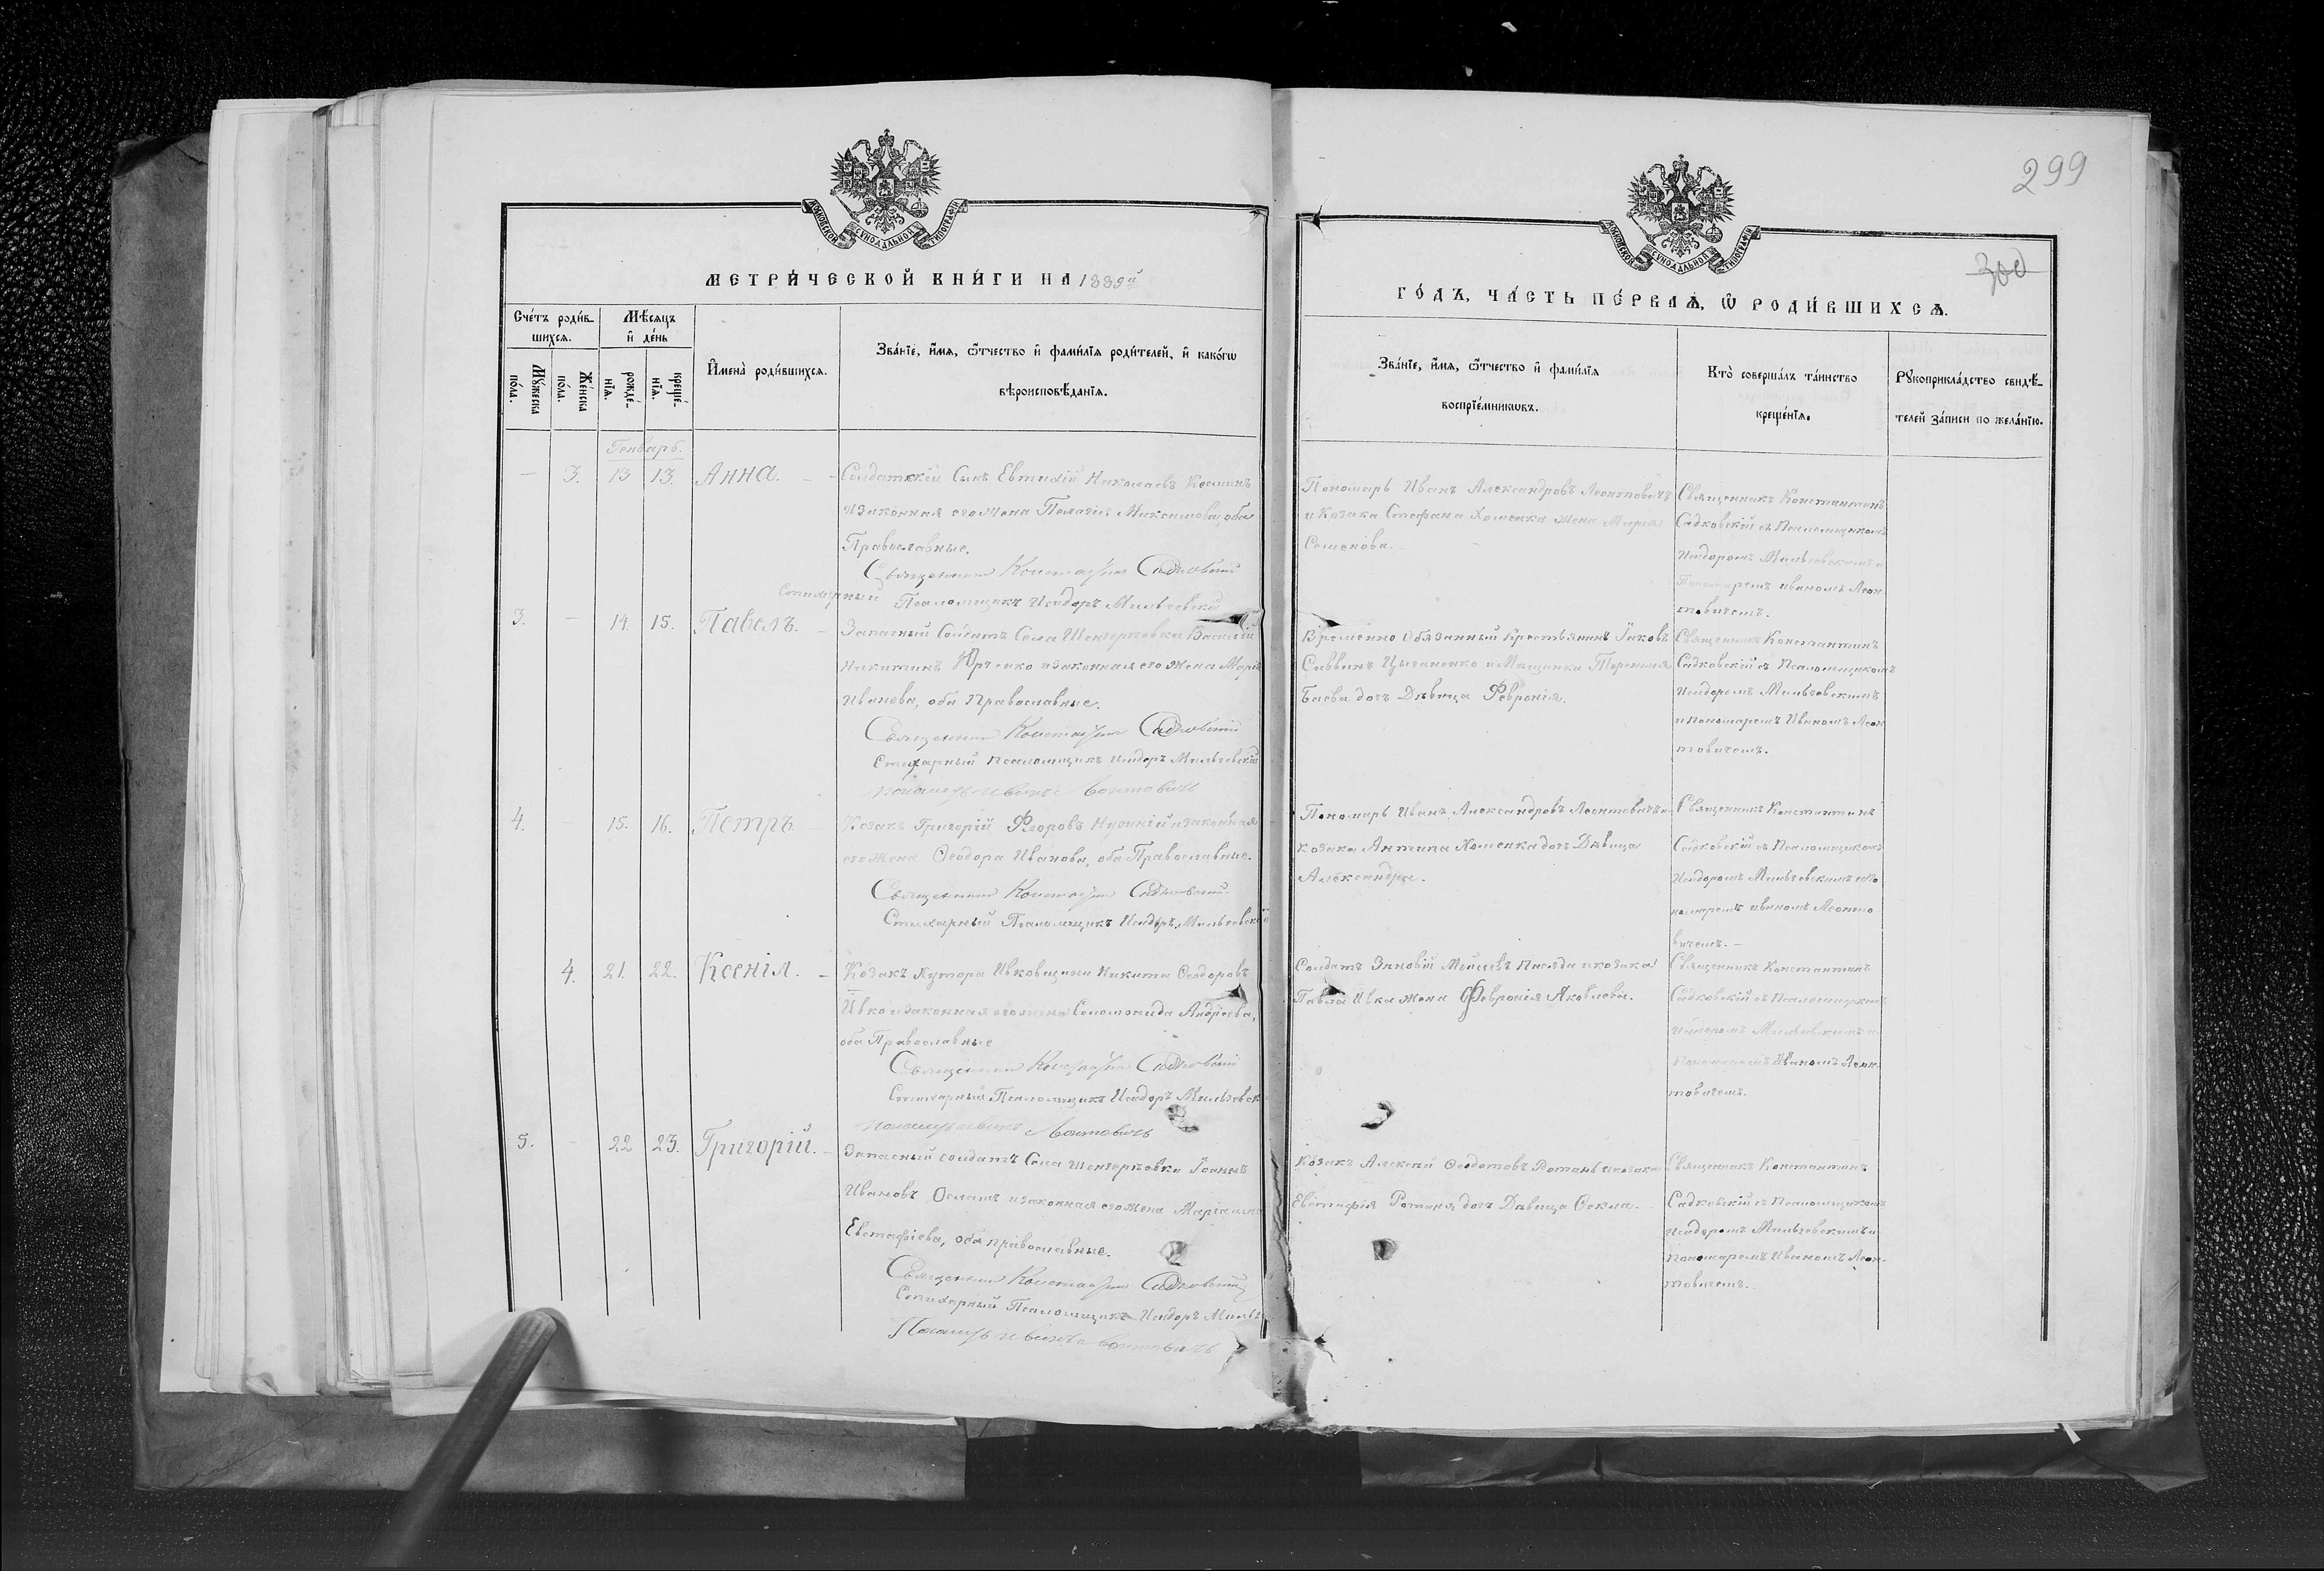 299
300
МОСКОВСКОЙ СУНОДАЛЬНОЙ ТИПОГРАФІИ
МОСКОВСКОЙ СУНОДАЛЬНОЙ ТИПОГРАФІИ
МЕТРИ́ЧЕСКОЙ КНИ́ГИ НА 1889й
ГО́ДЪ, ЧА́СТЬ ПЕ́РВАѦ, Ѡ РОДИ́ВШИХСѦ.
Сче́тъ роди́в-
шихсѧ.
Мѣ́сѧцъ
и҆ де́нь
Мꙋ́жеска по́ла.
Же́нска по́ла.
рожде́-нїѧ.
креще́-нїѧ.
И҆мена̀ роди́вшихсѧ.
Зва́нїе, и҆́мѧ, ѻ҆́тчество и҆ фами́лїѧ роди́телей, и҆ како́гѡ
вѣроисповѣ́данїѧ.
Зва́нїе, и҆́мѧ, ѻ҆́тчество и҆ фами́лїѧ
воспрїе́мникѡвъ.
Кто̀ соверша́лъ та́инство
креще́нїѧ.
Рꙋкоприкла́дство свидѣ́-
телей за́писи по жела́нїю.
Генварь.
— 3. 13 13. Анна.
Солдатскій Сынъ Евтихій Николаевъ Косминъ
и законная его жена Пелагія Максимова, оба
Православные.
Священник Константин Садковский
Стихарный Псаломщикъ Исидоръ Мильгевскій
Пономарь Иванъ Александровъ Леонтовичъ
и Козака Стефана Хоменка жена Марія
Семенова.
Священникъ Константинъ
Садковскій съ Псаломщикомъ
Исидоромъ Мильгевскимъ и
Пономаремъ Иваномъ Леон
товичемъ.
3. — 14. 15. Павелъ.
Запасный Солдатъ Села Шенгерѣевки Василій
Никитинъ Юрченко и законная его жена Марія
Иванова, оба Православные.
Священник Константин Садковский
Стихарный Псаломщикъ Исидоръ Мильгевскій
Пономарь Иванъ Леонтовичъ
Временно Обязанный Крестьянинъ Іаковъ
Саввинъ Цыганенко и Мѣщанка
Баева дочь Дѣвица Февронія.
Священникъ Константинъ
Садковскій съ Псаломщикомъ
Исидоромъ Мильгевскимъ
и Пономаремъ Иваномъ Леон
товичемъ.
4. — 15. 16. Петръ
Козакъ Григорій Ѳеоровъ и законная
его жена Ѳеодора Иванова, оба Православные.
Священник Константин Садковский
Стихарный Псаломщикъ Исидоръ Мильгевскій
Пономарь Иванъ Александровъ Леонтовичъ и
козака Антипа Хоменка дочь Дѣвица
Александра.
Священникъ Константинъ
Садковскій съ Псаломщикомъ
Исидоромъ Мильгевскимъ и По
номаремъ Иваномъ Леонто
вичемъ. —
4. 21. 22. Ксенія.
Козакъ Хутора Ивковщини Никита Ѳеодоровъ
Ивко и законная его жена Соломонида Андріева,
оба Православные
Священник Константин Садковский
Стихарный Псаломщикъ Исидоръ Мильгевск
Пономарь Иванъ Леонтовичъ
Солдатъ Зиновій Мойсеевъ и козака
Павла Ивка жена Февронія Яковлева.
Священникъ Константинъ
Садковскій съ Псаломщикомъ
Исидоромъ Мильгевскимъ и
Пономаремъ Иваномъ Леон-
товичемъ.
5. — 22 23. Григорій.
Запасный солдатъ Села Шенгерѣевки Іоаннъ
Ивановъ и законная его жена
Евстафіева, оба православные.
Священник Константин Садковский
Стихарный Псаломщикъ Исидоръ Мильг
Пономарь Иванъ Леонтовичъ
Козакъ Алексій Ѳеодотовъ Ротань и козака
Евстафія Ротаня дочь Дѣвица Ѳекла.
Священникъ Константинъ
Садковскій съ Псаломщикомъ
Исидоромъ Мильгевскимъ и
Пономаремъ Иваномъ Леон-
товичемъ.